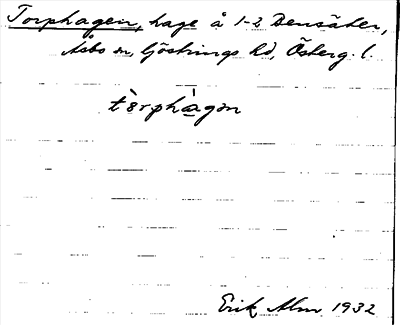 Torphagen, hage å 1-2 Densäter,
Åsbo sn, Göstrings hd, Österg. l.
tòrphàgən
Erik Alm. 1932